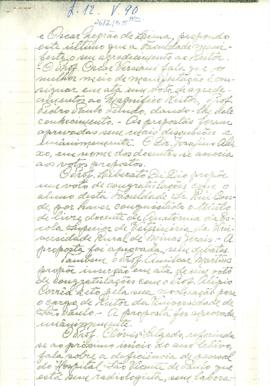 L. 12. V. 90
e Oscar Negrão de Lima, propondo
este último que a Faculdade mani-
feste o seu agradecimento ao Reitor.
- O Prof. Oscar Versiani fala que o
melhor meio de manifestação é con-
signar em ata um voto de agrade-
cimentos ao Magnífico Reitor, Prof.
Pedro Paulo Penido, dando-lhe des
conhecimento. - As propostas foram
aprovadas sem mais discussões e
unânimemente. O Dr. Josefino Alei-
xo, em nome dos docentes se associa
aos votos propostos.
O Prof. Liberato Di Dio propõe
um voto de congratulações com o
aluno desta Faculdade
por haver conquistado o título
de livre docente de Anatomia da Es-
cola Superior de Veterinária da Uni-
versidade Rural de Minas Gerais. - A
proposta foi aprovada sem debate.
Também o Prof. Amilcar Martins
propõe inserção em ata de um voto
de congratulações com o Prof. Alipio
Corrêa Neto pela sua indicação para
o cargo de Reitor da Universidade de
São Paulo. - A proposta foi aprovada
unânimemente.
O Prof. Clovis Salgado, referindo-
se ao próximo início do ano letivo,
fala sobre a deficiência de pessoal
do Hospital São Vicente de Paulo que
está sem radiologista, sem labora-